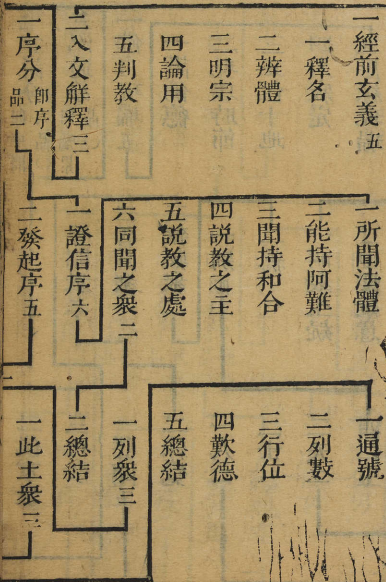 一經前玄義五
一釋名
二辨體
三明宗
四論用
五判教
二入文解釋三
一序分即序品二
一所聞法體
二能持阿難
三聞持和合
四說教之主
五說教之處
六同聞之衆二
一證信序六
二發起序五
一通號
二列數
三行位
四歎德
五總結
一列衆三
二總結
一此土衆三